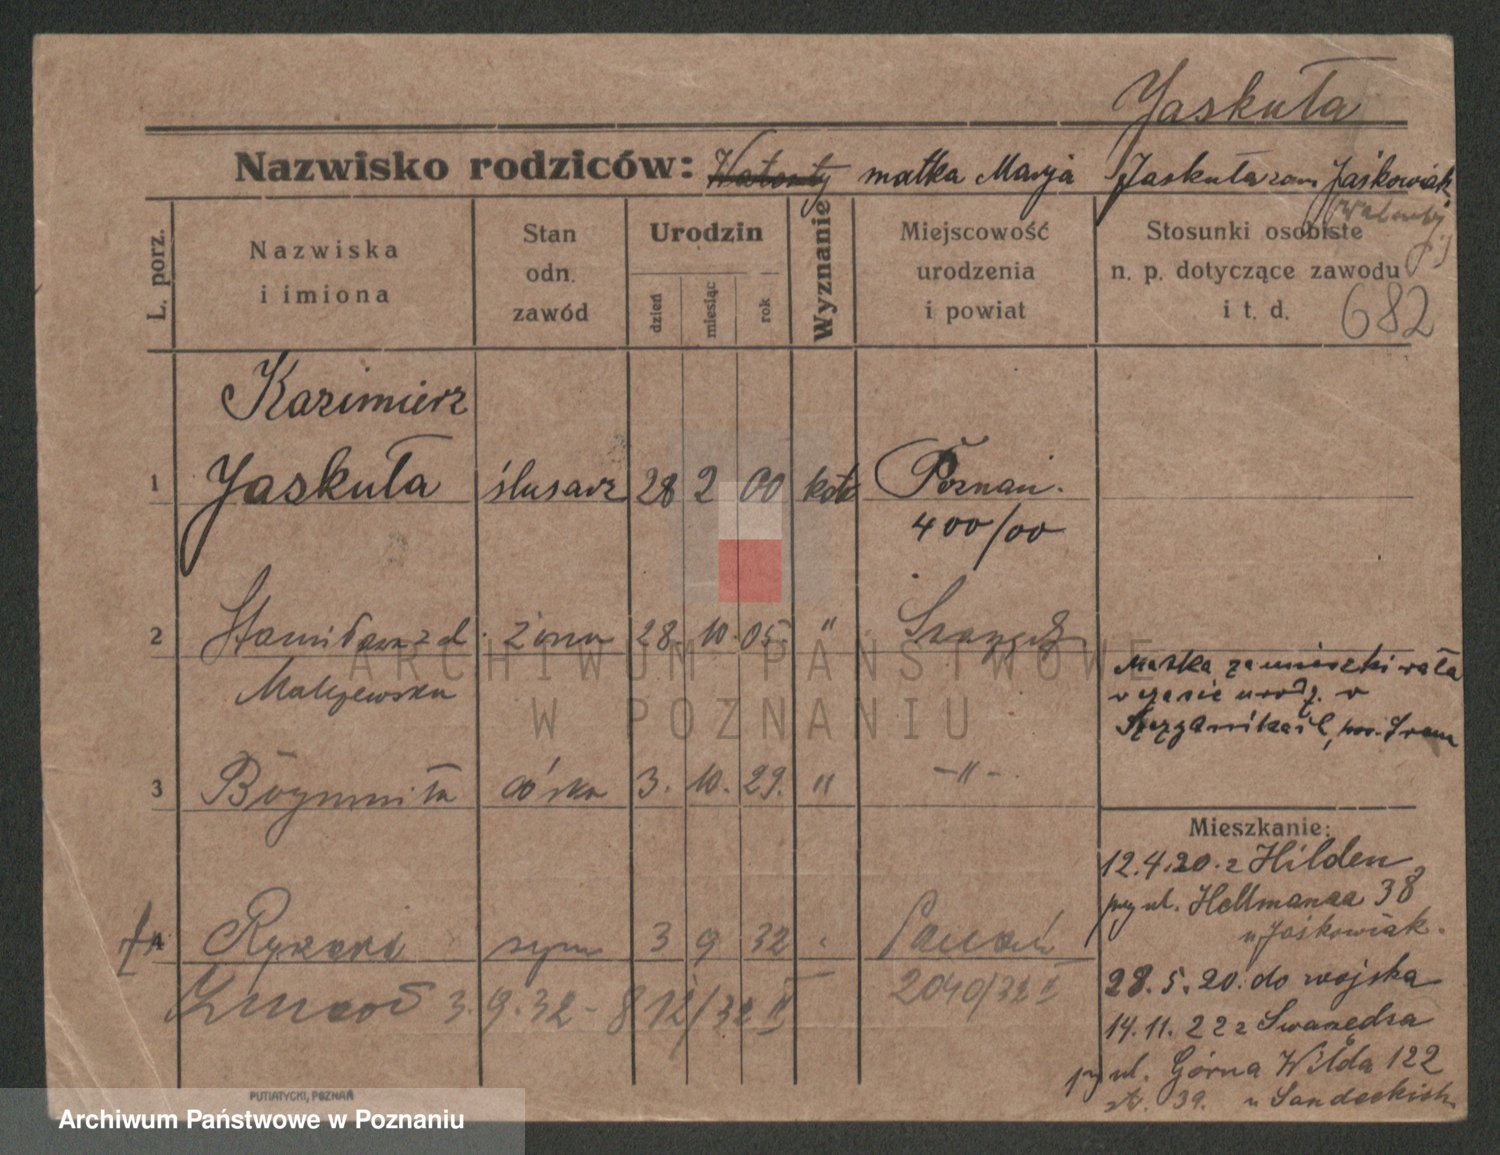 Jaskuła
Nazwisko rodziców: matka Maryja Jaskuła zam Jaśkowiak
L. porz.
Nazwiska i imiona
Stan odn. zawód
Urodzin
dzień
miesiąc
rok
Wyznanie
Miejscowość urodzenia i powiat
Stosunki osobiste n. p. dotyczące zawodu i t. d.
682
Kazimierz
1 Jaskuła ślusarz 28 2 00 kat Poznań.
400/00
2 Stanisława z d. żona 28. 10. 05. "
Malyewska
Matka zamieszkiwała
w czasie urodz. w
3 Bogumiła córka 3. 10. 29. " -"-
Mieszkanie:
12.4.20. z Hilden
przy ul. Hellmanaa 38
u Jaśkowiak.
4 Ryszard syn 3 9 32 Poznań
3.9.32 - 8 12/32 II 2040/32 II
28.5.20. do wojska
14.11.22 z Swarzędza
przy ul. Górna Wilda 122
st. 39. u Sandeckich
ARCHIWUM PAŃSTWOWE
W POZNANIU
PUTIATYCKI, POZNAŃ
Archiwum Państwowe w Poznaniu